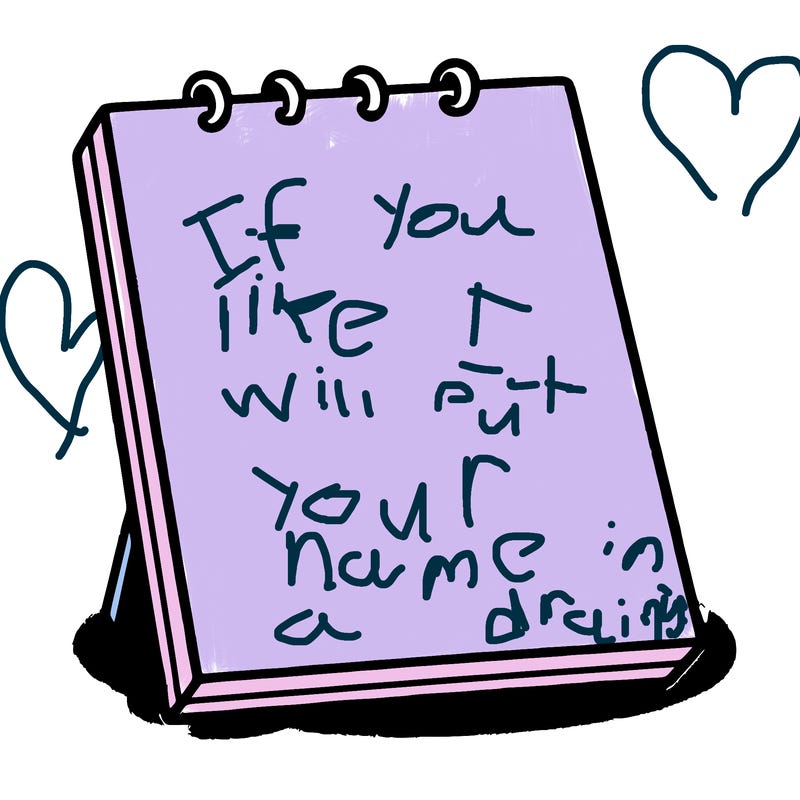 If you
like I
will put
your
name in
a